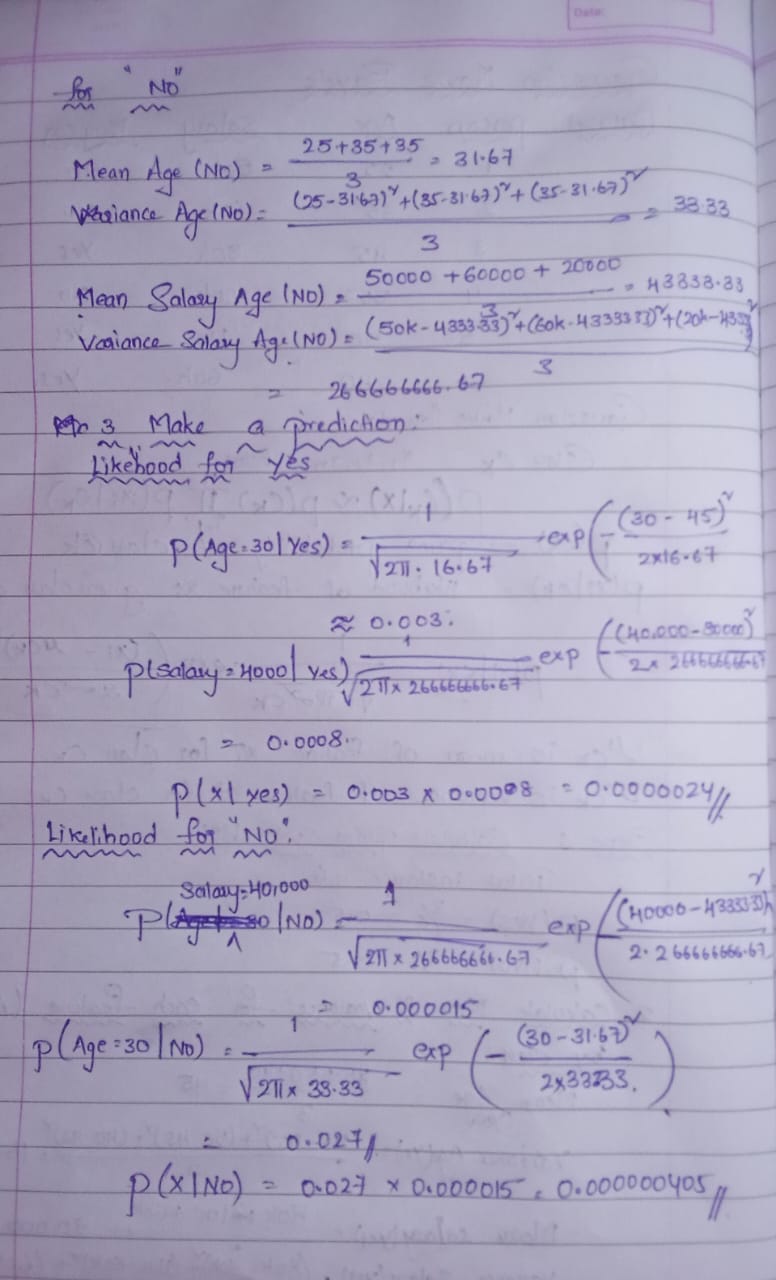 Date:
for "NO"
Mean Age (NO) = (25+35+35)/3 = 31.67
Variance Age(No) = ((25-31.67)²+(35-31.67)²+(35-31.67)²)/3 = 33.33
Mean Salary Age (NO) = (50000+60000+20000)/3 = 43333.33
Variance Salary Age(NO) = ((50k-4333.33)²+(60k-43333.33)²+(20k-4333)²)/3
= 266666666.67
3 Make a prediction:
Likehood for yes
P(Age=30|Yes) = 1/√(2π. 16.67) .exp(-(30-45)²/2x16.67
≈ 0.003.
p(salary=4000| yes) 1/√(2π x 266666666.67) .exp (-((40.000-50000)²/2x 266666666.67
= 0.0008.
P(x| yes) = 0.003 x 0.0008 = 0.0000024//
Likelihood for "NO".
Salary=40,000
P(|NO) = 1/√(2π x 266666666.67) exp(-(40000-43333.33)²/2.266666666.67
= 0.000015
P(Age=30|No) = 1/√(2π x 33.33) exp(-(30-31.67)²/2x33.33.)
= 0.027//
P(X|NO) = 0.027 x 0.000015 = 0.000000405//